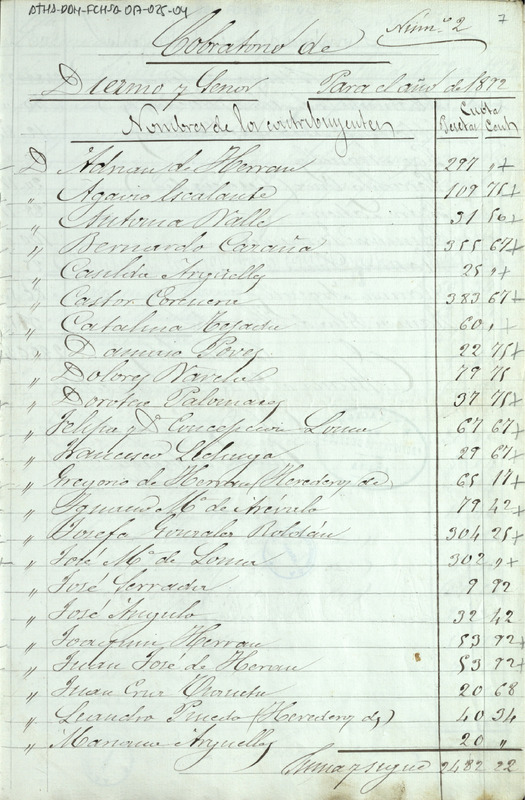 ATHA-DAH-FCHSA-017-025-04
Núm.º 2
7
Cobratorio de
Diezmo y Señor Para el año de 1872
Nombres de los contribuyentes
Cuota
Pesetas Cent
D Adrian de Herran 297 „ +
„ Agapio Escalante 109 75 +
„ Antonia Valle 31 56 +
„ Bernardo Caraña 355 67 +
„ Casilda Arguelles 25 „ +
„ Castor 383 67 +
„ Catalina Tejada 60 „ +
„ Damaso Poves 22 75 +
„ Dolores Varela 79 75
„ Dorotea Palomares 37 75 +
„ Felipa y Dª Concepcion Loma 67 67 +
„ Francisco 29 67 +
„ Gregorio de Herran (Herederos de) 65 17 +
„ Ignacio Mª de Arévalo 79 42 +
„ Josefa Gonzalez Roldán 304 25 +
„ José Mª de Loma 302 „ +
„ José Serrada 9 92
„ José Angulo 32 42
„ Joaquin Herran 53 92 +
„ Juan José de Herran 53 92 +
„ Juan Cruz 20 68
„ Leandro Pinedo (Herederos de) 40 34
„ Mariano Arguelles 20 „
Suma y sigue 2482 22